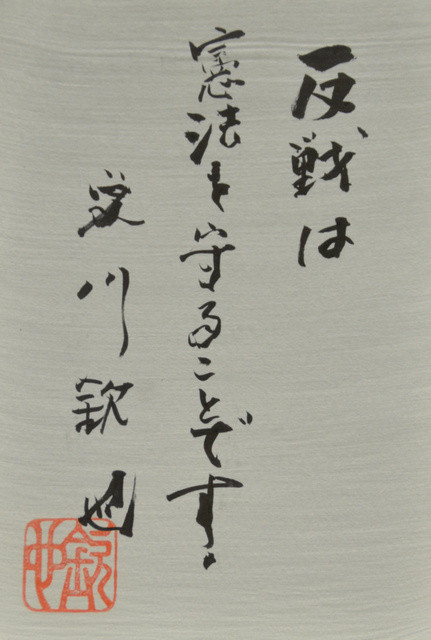 反戦は
憲法を守ることです。
愛川欽也
欽也